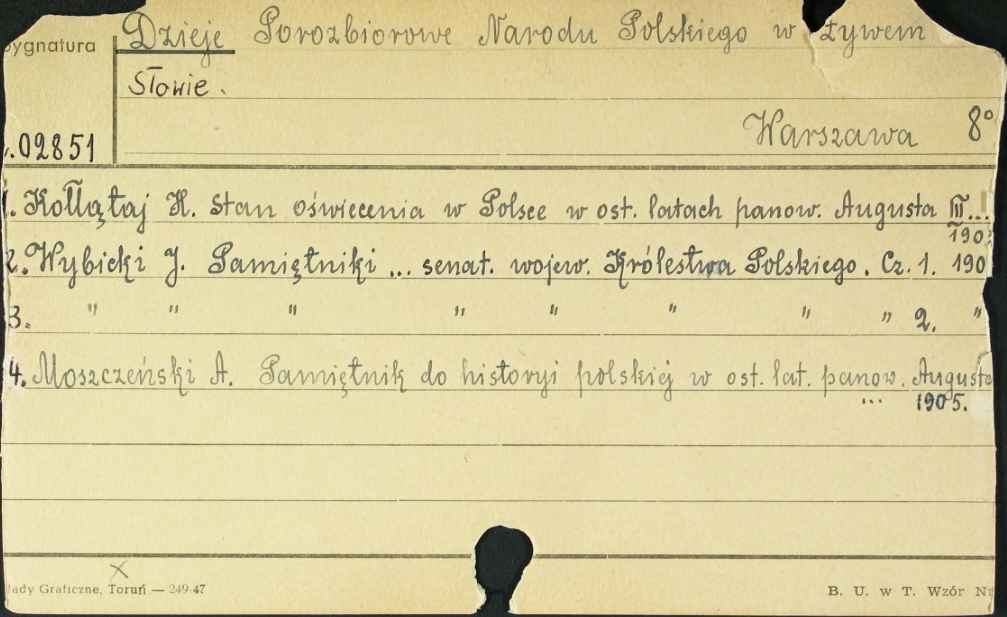 Sygnatura
Dzieje Porozbiorowe Narodu Polskiego w żywem
Słowie.
Warszawa 8°
.02851
1. Kołłątaj H. Stan oświecenia w Polsce w ost. latach panow. Augusta III...
190
2. Wybicki J. Pamiętniki ... senat. wojew. Królestwa Polskiego. Cz. 1. 190
3. " " " " " " " " 2. "
4. Moszczeński A. Pamiętnik do historyi polskiej w ost. lat. panow. Augusta
... 1905.
łady Graficzne, Toruń — 249-47
B. U. w T. Wzór Nr